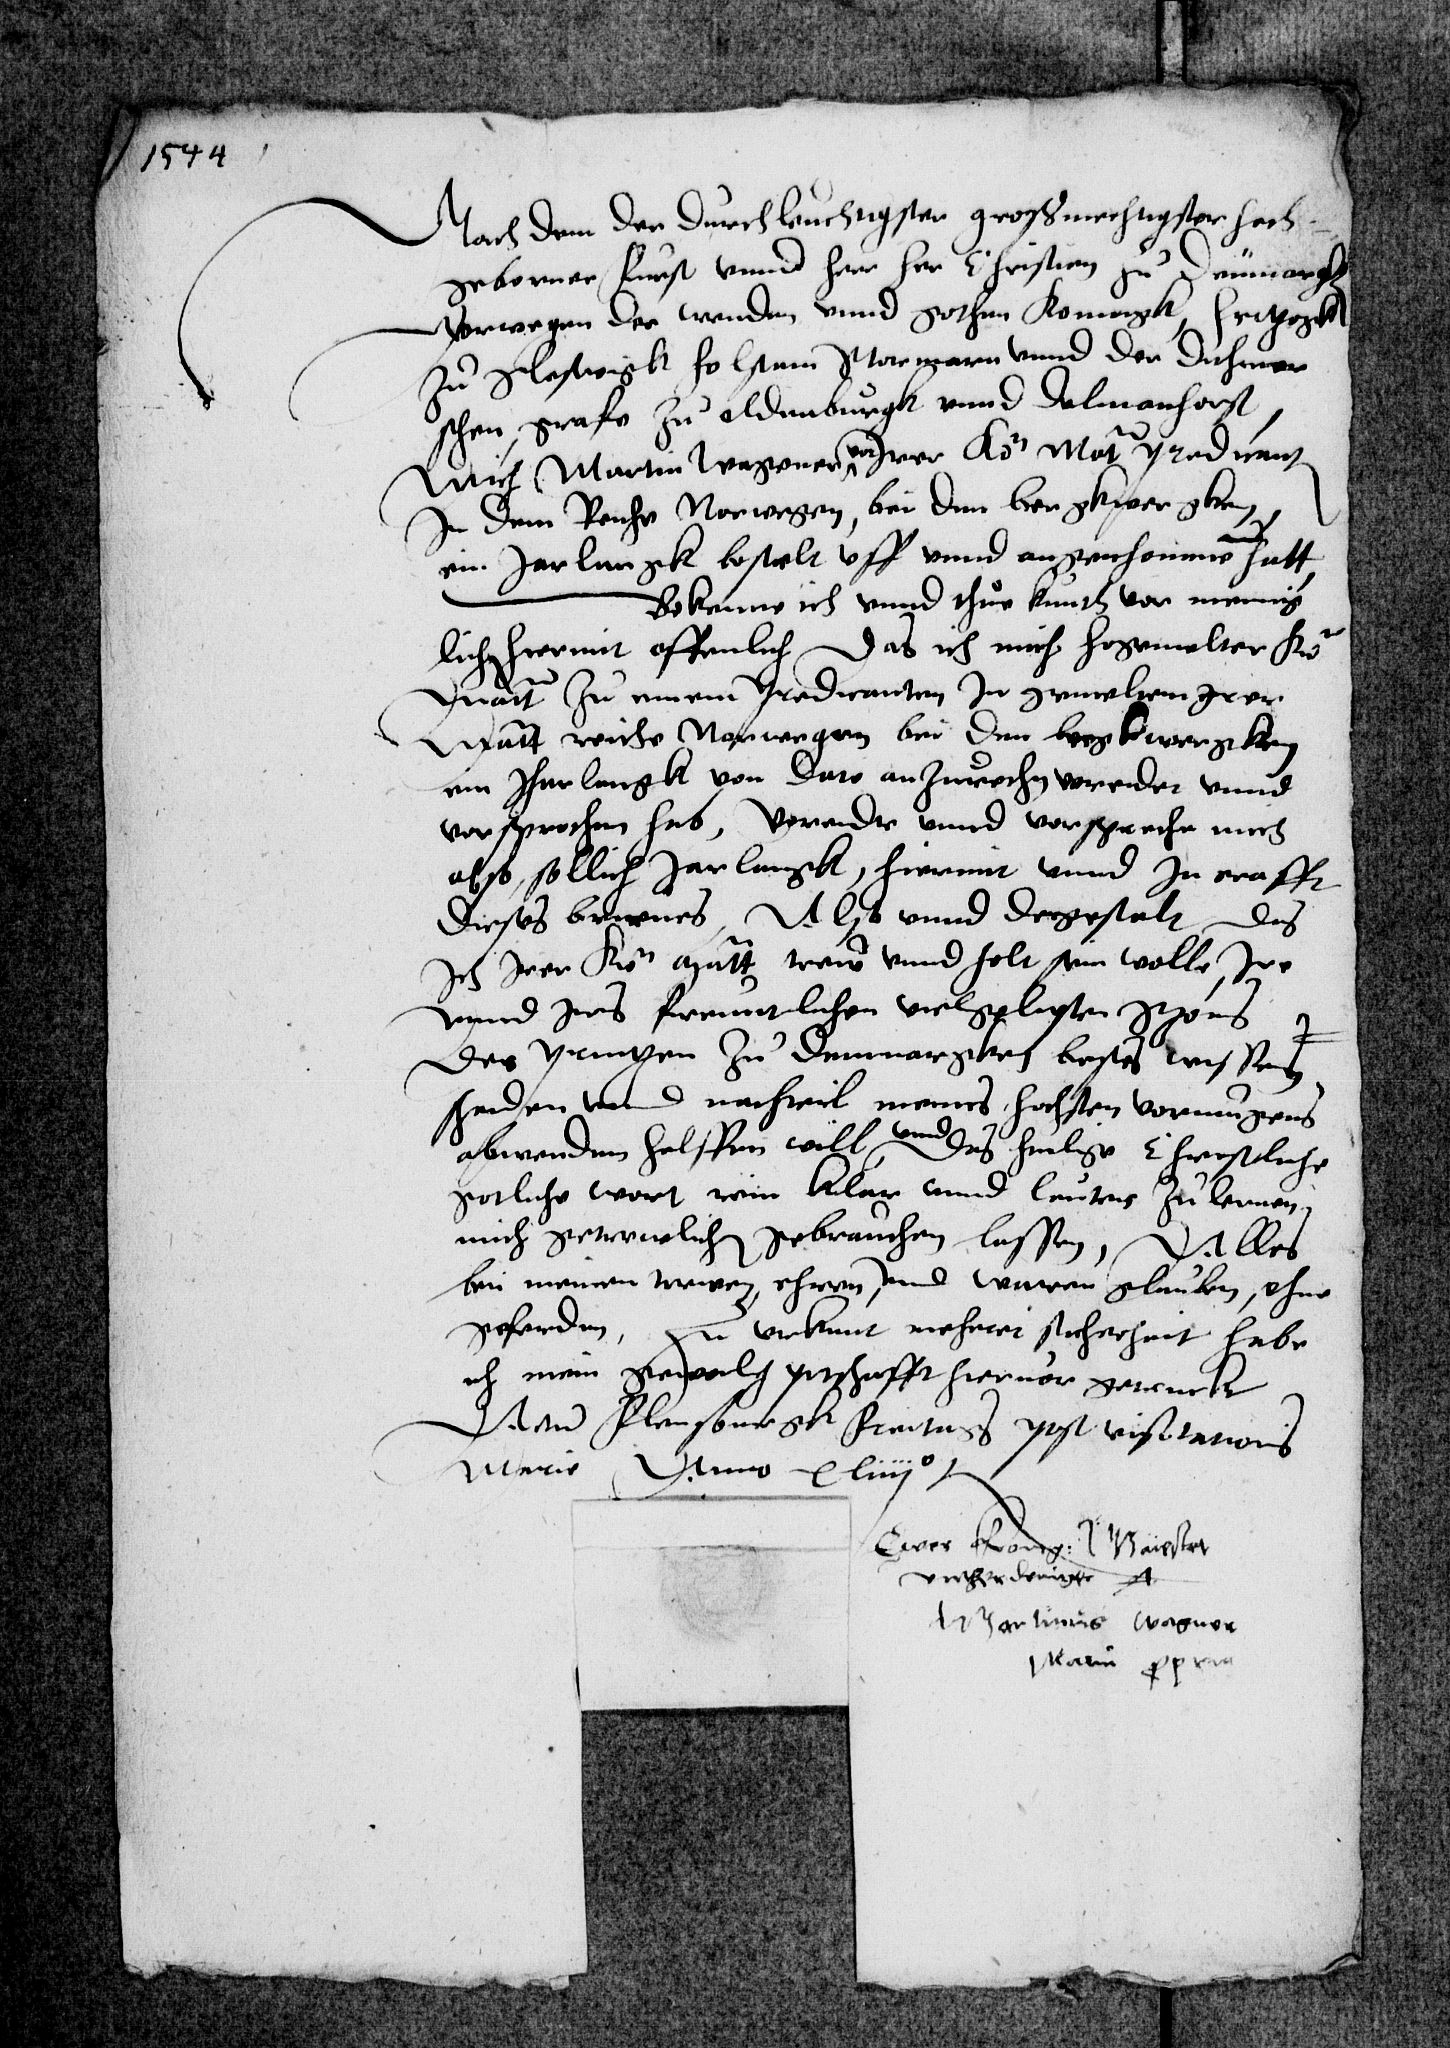 1544
Nach dem der durchleuchtigster großmechtigster hoch-
geborner furst vnnd herr her Christian zu Denmargk
Norwegen der wenden vnnd gothen Konnigk, hertzogk
zu Sleswigk holstein Stormarn vnnd der Dithmer
schen, graffe zu oldenburgk vnnd delmanhorst,
Mich Martin Wagener vor Irer Ko Mat predicant
In dem Reiche Norwegen, bei den bergkwergken,
ein Jarlangk bestelt vff vnnd angenhomme hatt,
Bekenne ich vnnd thue kunth vor mennig
lich hiermit offenlich Das ich mich hogemelter Ko
Matt zu einem predicanten In gemeltem Irer
Matt reiche Norwegen bei den bergkwergken
ein Jharlangk von dato anzurechn voreidet vnnd
vorsprochen hab, Voreide vnnd vorspreche mich
also, sollich Jarlangk, hiermit vnnd In crafft
dieses brieues, Also vnnd dergestalt das
Ich Irer Ko Matt trew vnnd holt sein wolle, Ire
vnnd Irs freuntlichen vielgelipten Shons
des printzen zu Denmargken bestes wissen
schaden vnnd nachteil meines hochsten vormugens
abwenden helffen will, vnd Das heilige Christliche
gotliche wort rein klar vnnd lauter zu lernen,
mich getrewlich gebrauchen lassen, Alles
bei meinen trewen, ehren, vnd waren glauben, ohne
geferden, Zu vrkunt meherer sicherheit habe
ich mein gewonlig pitzschafft hieruor getruckt
Datum Flensburgk Freitags post visitationis
Marie Anno xliiij°
Ewer Konig: Maiestet
vnterdenigster
Martinus Wagner
Manu ppria